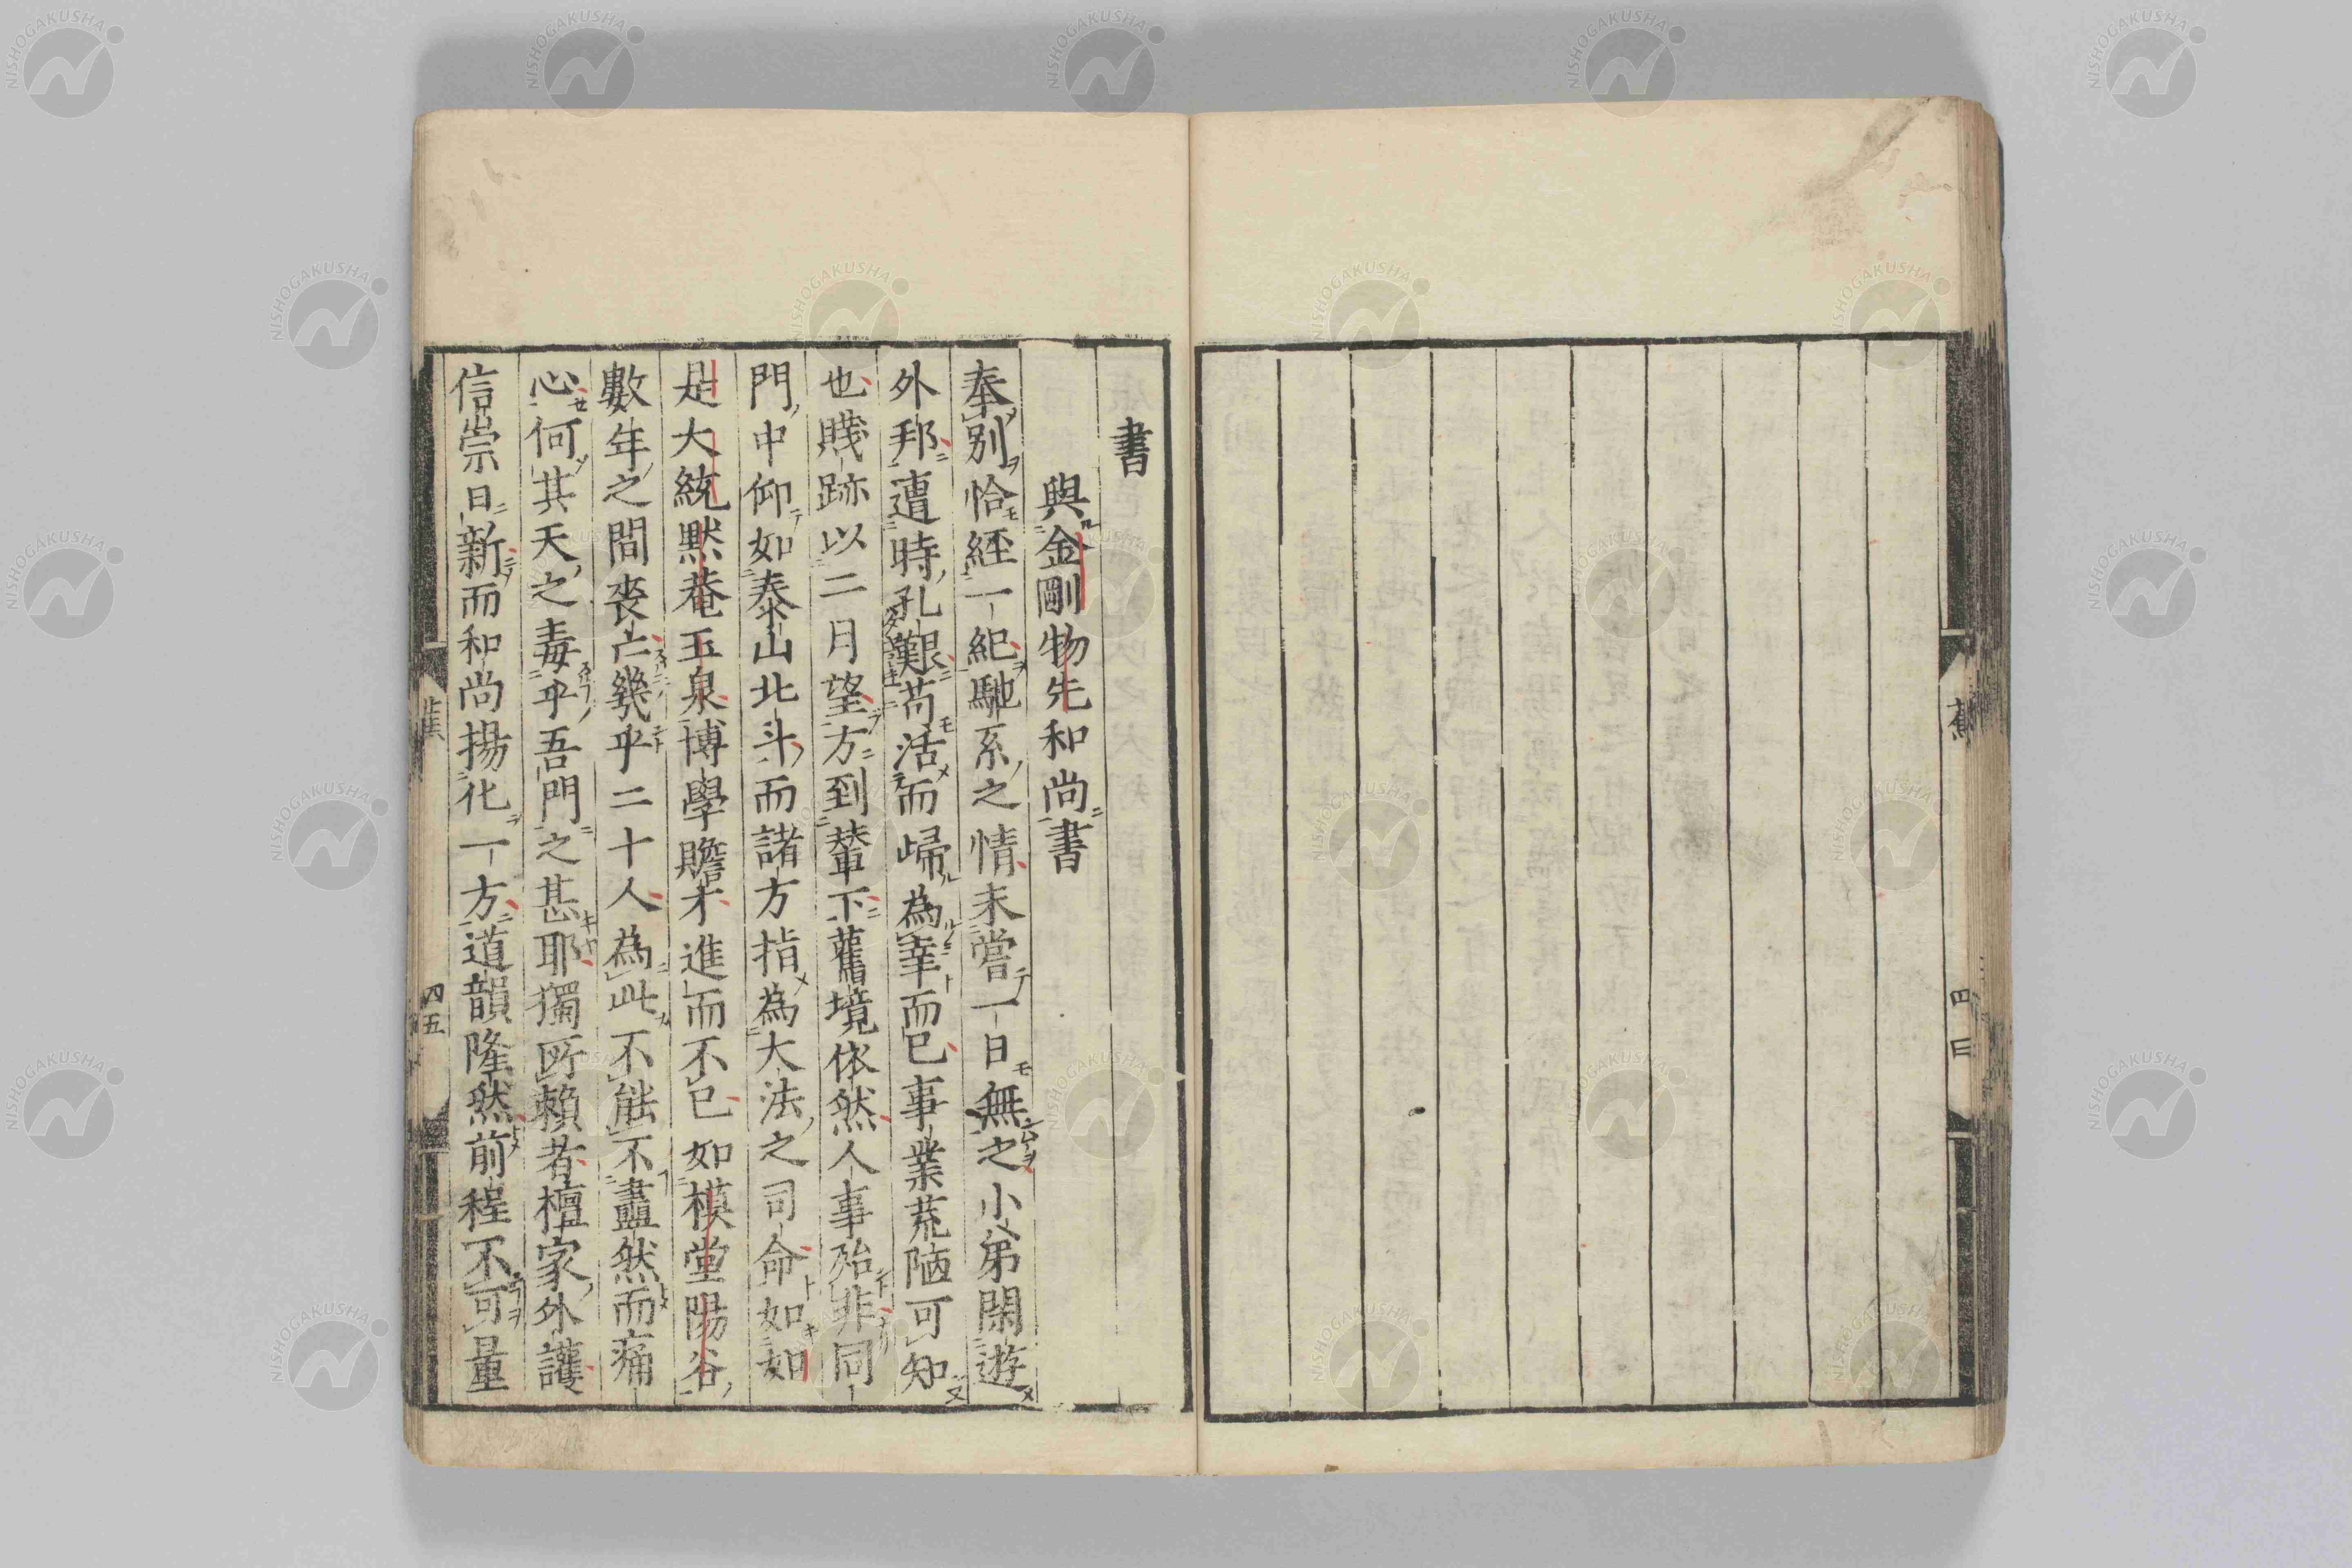 書
與金剛物先和尚書
奉別恰經一紀馳系之情未嘗一日無之小弟閑遊
外邦遭時孔艱苟活而歸為幸而已事業荒陋可知
也賤跡以二月望方到輦下舊境依然人事殆非同
門中仰如泰山北斗而諸方指為大法之司命如如
是大統默菴玉泉博學贍才進而不已如模堂陽谷
數年之間喪亡幾乎二十人為此不能不盡然而痛
心何其天之毒乎吾門之甚耶獨所賴者檀家外護
信崇日新而和尚揚化一方道韻隆然前程不可量
蕉
四五
NISHOGAKUSHA